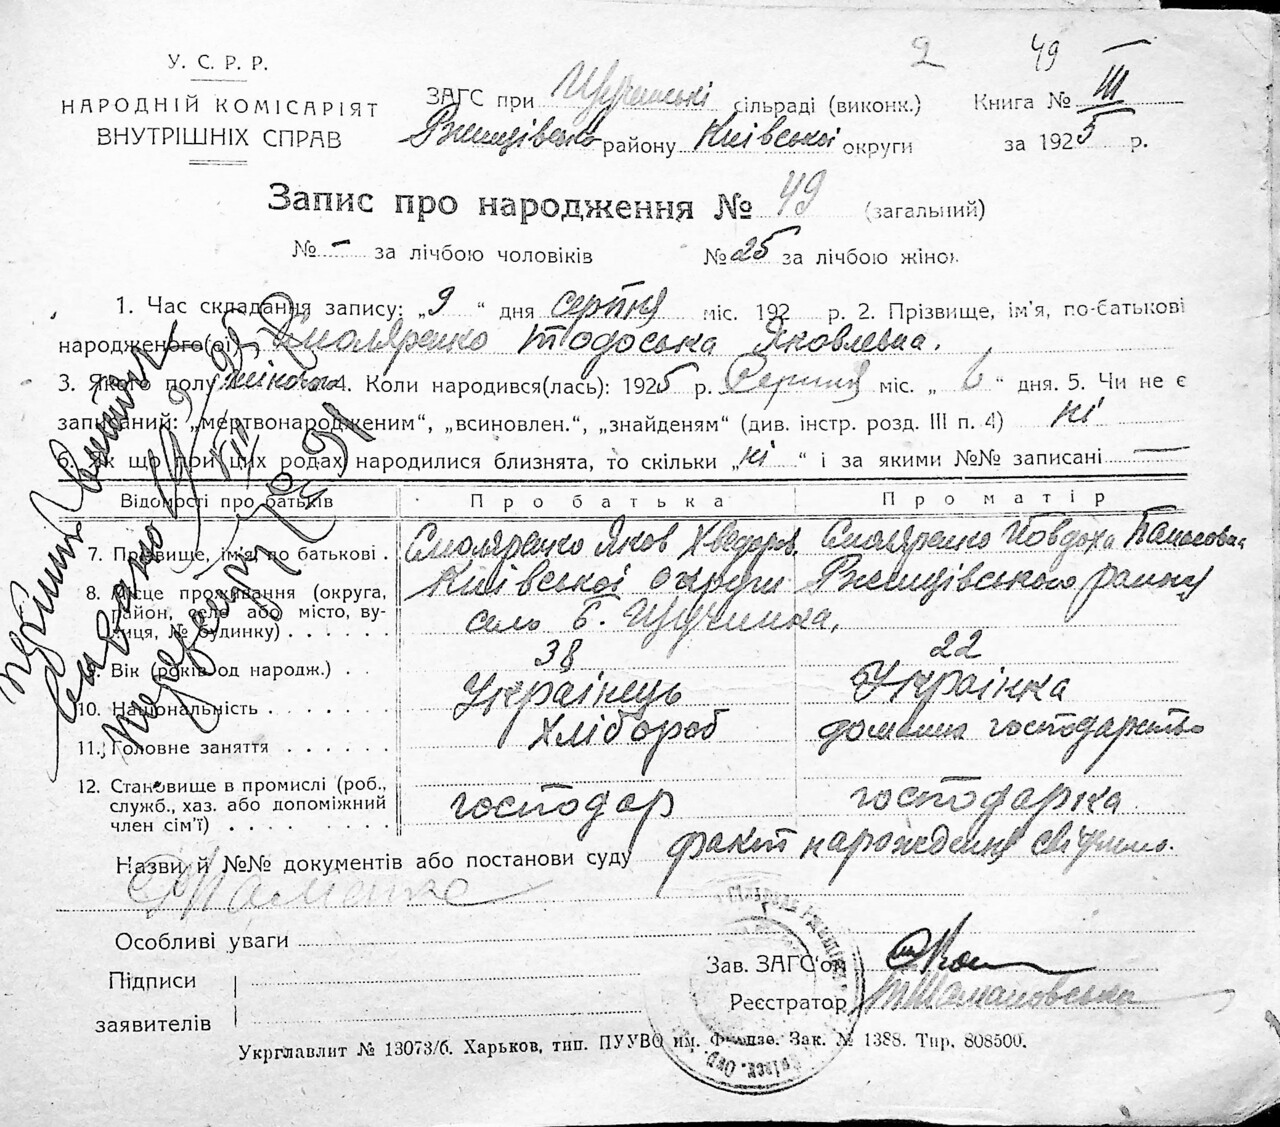 2 49
У. С. Р. Р.
НАРОДНІЙ КОМІСАРІЯТ
ВНУТРІШНІХ СПРАВ
ЗАГС при сільраді (виконк.) Книга № III
району Київської округи за 1925 р.
Запис про народження № 49 (загальний)
№ – за лічбою чоловіків № 25 за лічбою жінок
1. Час складання запису: „9“ дня серпня міс. 192 р. 2. Прізвище, ім'я, по-батькові
народженого(ої) Смоляренко Тодоська Яковлевна.
3. Якого полу жіночого 4. Коли народився(лась): 1925 р. Серпня міс. „6“ дня. 5. Чи не є
записаний: „мертвонародженим“, „всиновлен.“, „знайденям“ (див. інстр. розд. III п. 4) ні
6. Як що при цих родах народилися близнята, то скільки „ні“ і за якими №№ записані —
Відомості про батьків Про батька Про матір
7. Прізвище, ім'я, по батькові . Смоляренко Яков Хведоров. Смоляренко Йовдоха Панасовна
8. Місце проживання (округа, район, село або місто, вулиця, № будинку) . . . . . Київської округи Ржищівського району
село
9. Вік (років од народж.) . . 38 22
10. Національність . . . . . . Українець Українка
11. Головне заняття . . . . . . Хлібороб домашнє господарство
12. Становище в промислі (роб.,
служб., хаз. або допоміжний
член сім'ї) . . . . . . . господар господарка
Назви й №№ документів або постанови суду факт нарождения
Особливі уваги
Підписи
заявителів
Зав. ЗАГС'ом
Реєстратор
Укрглавлит № 13073/б. Харьков, тип. ПУУВО им. Фрунзе. Зак. № 1388. Тир. 808500.